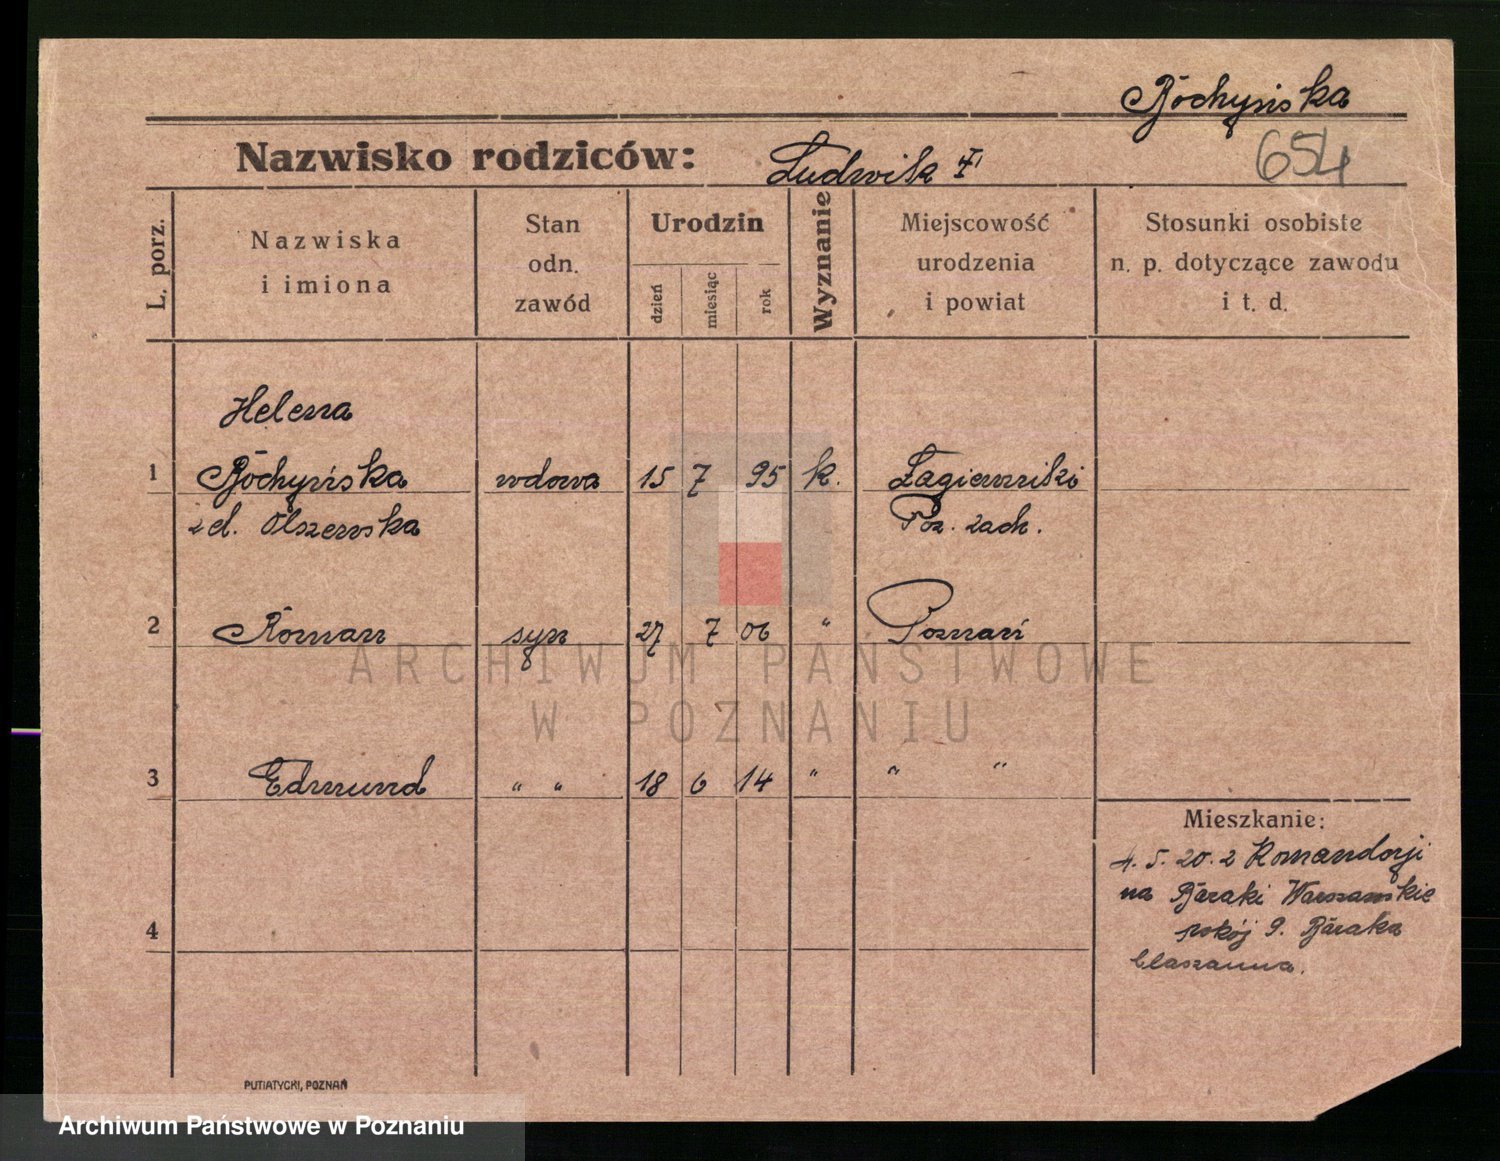 Bochyńska
Nazwisko rodziców: Ludwik
654
L. porz.
Nazwiska
i imiona
Stan
odn.
zawód
Urodzin
dzień
miesiąc
rok
Wyznanie
Miejscowość
urodzenia
i powiat
Stosunki osobiste
n. p. dotyczące zawodu
i t. d.
Helena
1 Bochyńska wdowa 15 7 95 k. Łagiewniki
zd. Olszewska Poz. zach.
2 Roman syn 27 7 06 " Poznań
ARCHIWUM PAŃSTWOWE
W POZNANIU
3 Edmund " " 18 6 14 " " "
Mieszkanie:
4. 5. 20. z Komandorji
na Baraki Warszawskie
4 pokój 9. Baraka
blaszanna.
PUTIATYCKI, POZNAŃ
Archiwum Państwowe w Poznaniu